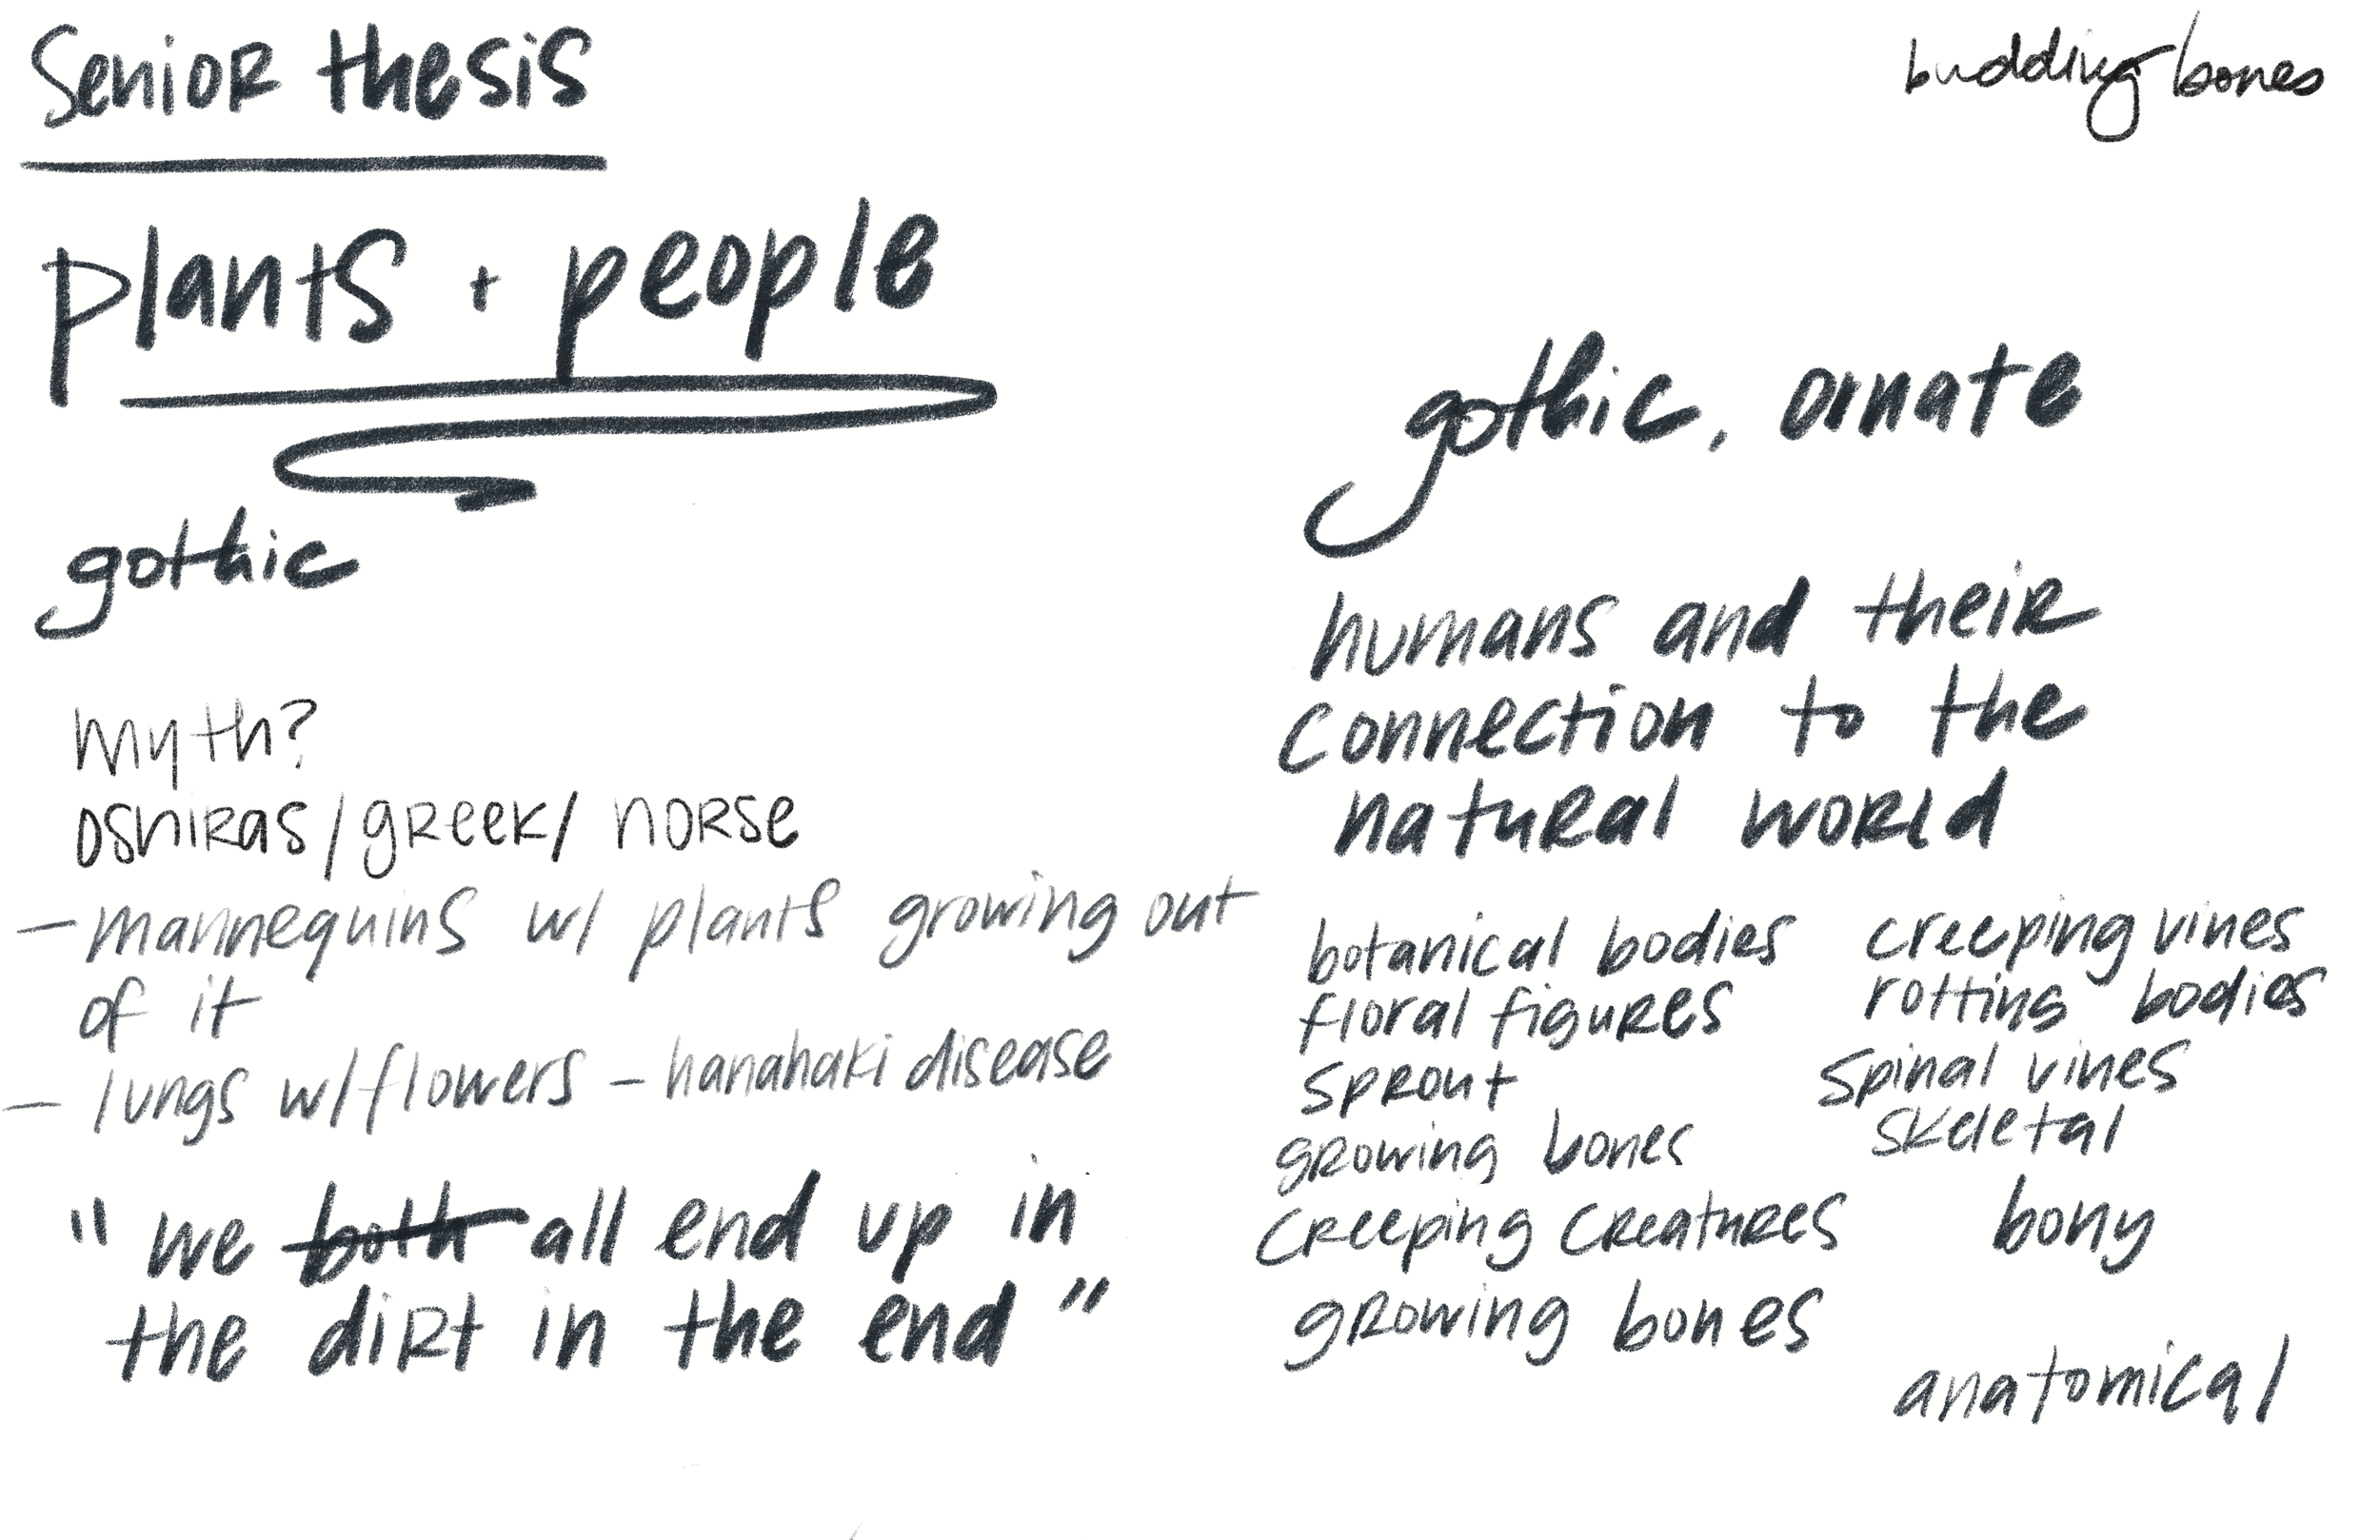 Senior thesis
budding bones
plants + people
gothic
myth?
oshiras/greek/ norse
- mannequins w/ plants growing out
of it
- lungs w/flowers - hanahaki disease
" we both all end up in
the dirt in the end "
gothic, ornate
humans and their
connection to the
natural world
botanical bodies
floral figures
sprout
growing bones
creeping creatures
growing bones
creeping vines
rotting bodies
spinal vines
skeletal
bony
anatomical